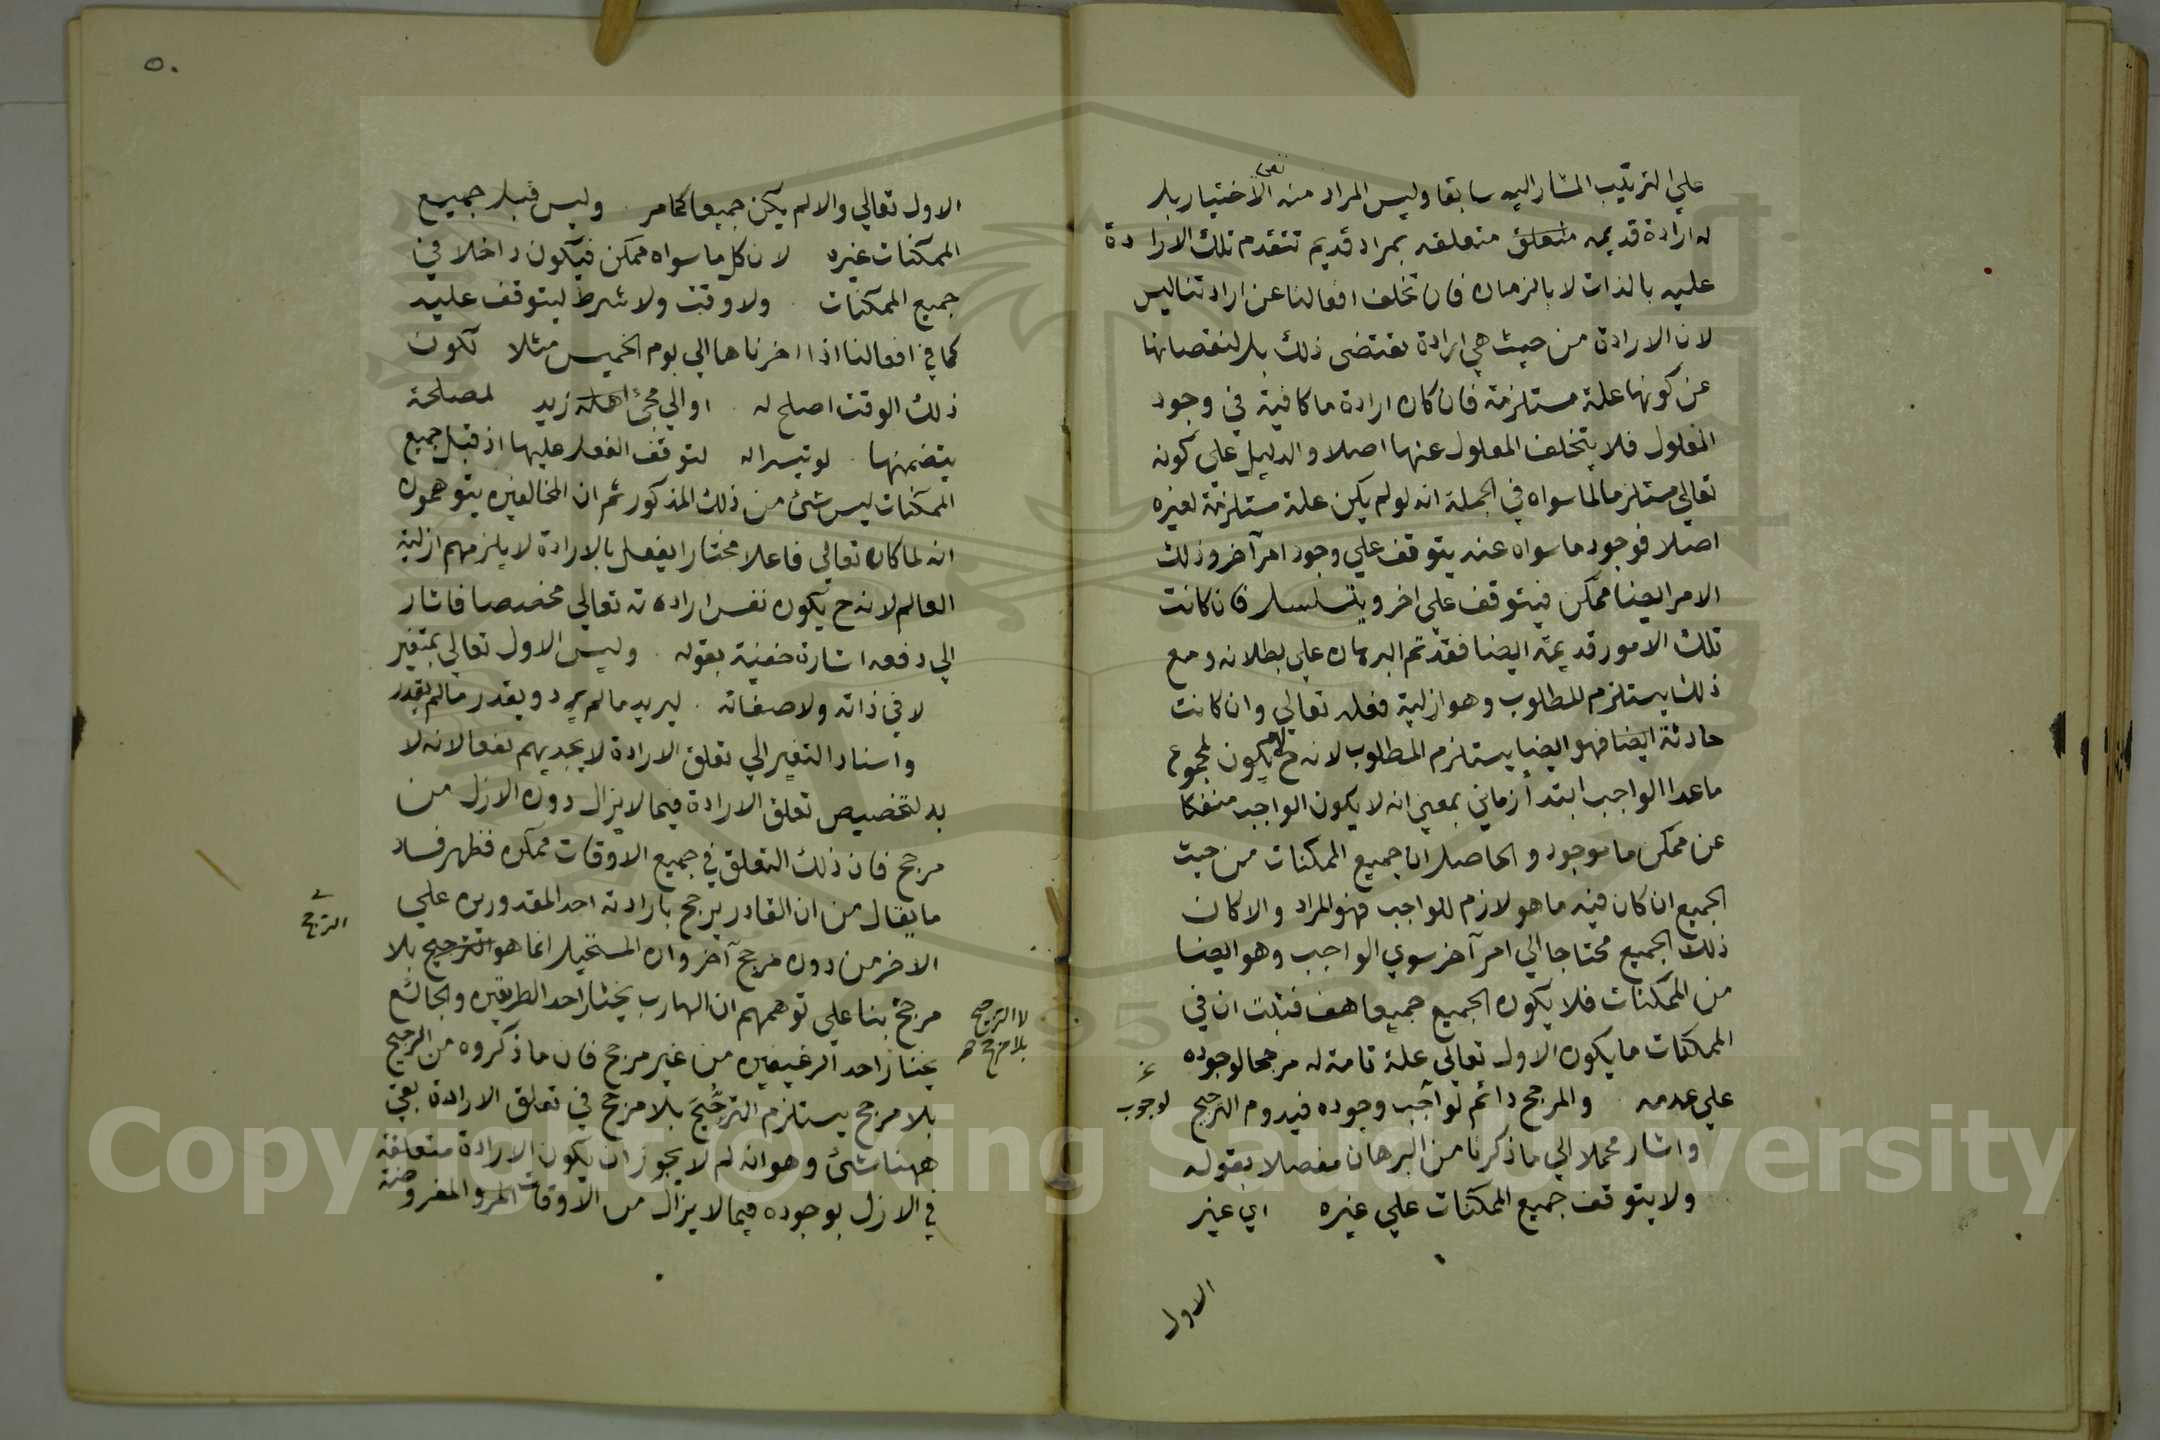 علي الترتيب المشار اليه سابقا وليس المراد منه نفي الاختيار بل
له ارادة قديمه متعلقه بمراد قديم تتقدم تلك الارادة
عليه بالذات لا بالزمان فان تخلف افعالنا عن ارادتنا ليس
لان الارادة من حيث هي ارادة تقتضى ذلك بل لنقصانها
عن كونها علة مستلزمة فان كان ارادة ما كافية في وجود
المعلول فلا يتخلف المعلول عنها اصلا والدليل علي كونه
تعالي مستلزما لما سواه في الجملة انه لو لم يكن علة مستلزمة لغيره
اصلا فوجود ما سواه عنه يتوقف علي وجود امر آخر وذلك
الامر ايضا ممكن فيتوقف علي اخر ويتسلسل فان كانت
تلك الامور قديمة ايضا فقد تم البرهان علي بطلانه ومع
ذلك يستلزم للمطلوب وهو ازلية فعله تعالي وان كانت
حادثة ايضا فهو ايضا يستلزم المطلوب لانه ح لم يكون لمجموع
ما عدا الواجب ابتدأ زماني بمعني انه لا يكون الواجب منفكا
عن ممكن ما موجود والحاصل ان جميع الممكنات من حيث
الجميع ان كان فيه ما هو لازم للواجب فهو المراد والا كان
ذلك الجميع محتاجا الي امر آخر سوي الواجب وهو ايضا
من الممكنات فلا يكون الجميع جميعا هف فثبت ان في
الممكنات ما يكون الاول تعالي علة تامة له مرجحا لوجوده
علي عدمه والمرجح دائم لواجب وجوده فيدوم الترجيح
لوجوب
واشار مجملا الي ما ذكرنا من البرهان مفصلا بقوله
ولا يتوقف جميع الممكنات علي غيره اي غير
الاول
٥٠
الاول تعالي والا لم يكن جميعا كما مر وليس قبل جميع
الممكنات غيره لان كل ما سواه ممكن فيكون داخلا في
جميع الممكنات ولا وقت ولا شرط ليتوقف عليه
كما في افعالنا اذا اخرناها الي يوم الخميس مثلا لكون
ذلك الوقت اصلح له او الي مجئ زيد لمصلحة
يتضمنها لو تيسر له لتوقف الفعل عليها اذ قبل جميع
الممكنات ليس شئ من ذلك المذكور ثم ان المخالفين يتوهمون
انه لما كان تعالي فاعلا مختارا يفعل بالارادة لا يلزمهم ازلية
العالم لانه ح يكون نفس ارادته تعالي مخصصا فاشار
الي دفعه اشارة خفية بقوله وليس الاول تعالي بمتغير
لا في ذاته ولا صفاته ليريد ما لم يرد ويقدر ما لم يقدر
واسناد التغير الي تعلق الارادة لا يجديهم نفعا لانه لا
بد لتخصيص تعلق الارادة فيما لا يزال دون الازل من
مرجح فان ذلك التعلق في جميع الاوقات ممكن فظهر فساد
ما يقال من ان القادر يرجح بارادته احد المقدورين علي
الترجح
الاخر من دون مرجح آخر وان المستحيل انما هو الترجيح بلا
مرجح بنا علي توهمهم ان الهارب يختار احد الطريقين والجائع
لا الترجيح
بلا مرجح صح
يختار احد الرغيفين من غير مرجح فان ما ذكروه من الترجيح
بلا مرجح يستلزم الترجُّح بلا مرجح في تعلق الارادة بقي
ههنا شئ وهو انه لم لا يجوز ان يكون الارادة متعلقة
في الازل بوجوده فيما لا يزال من الاوقات المفروضة
Copyright © King Saud University